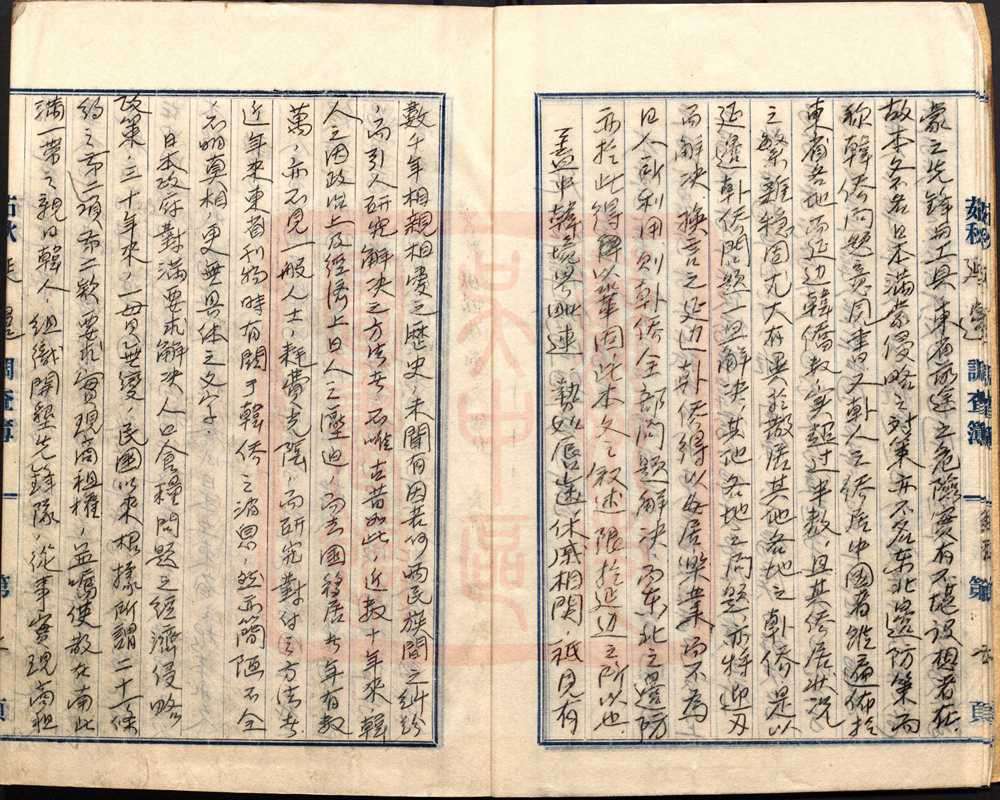 蒙之先鋒與工具，東省前途之危險實有不堪設想者在，
故本名不名日本滿蒙侵略之對策亦不名東北邊防策而
称韓僑問題意同書也，韓人之僑居中國者雖遍佈於
東省各地而延边韓僑數实超过半数，且其僑居狀况
之繁雜穩固尤大有異於散居其他各地之韩僑，是以
延邊韩僑問題一旦解决，其他各地之問題，亦將迎刃
而解决，换言之延边韩僑得以安居樂業，而不為
日人所利用，則韩僑全部問題解决，而東北之邊防
亦於此得以鞏固，此本文之叙述限於延边之所以也
蓋中韓境界毗連，勢如唇齒，休戚相関，祗見有
數千年相親相愛之歷史，未聞有因若何両民族間之糾紛
，而引人研究解决之方法者，不唯古昔如此，近数十年来，韓
人之因政治上及經濟上日人之壓迫，而去國移居者年有数
萬，亦不見一般人士，耗費光陰，而研究對付之方法者
近年来東省刊物時有関于韓僑之消息，然亦簡陋不全
不明真相，更無具体之文字
日本政府對滿要求解决人口食糧問題之經濟侵略
政策，三十年来，一毋且無變，民國以来根據所謂二十一條
約之第二項第二欸要求實現商租權，並嗾使散在南北
滿一带之親日韓人，組織開墾先鋒隊，從事實現商租
調查簿
第
頁